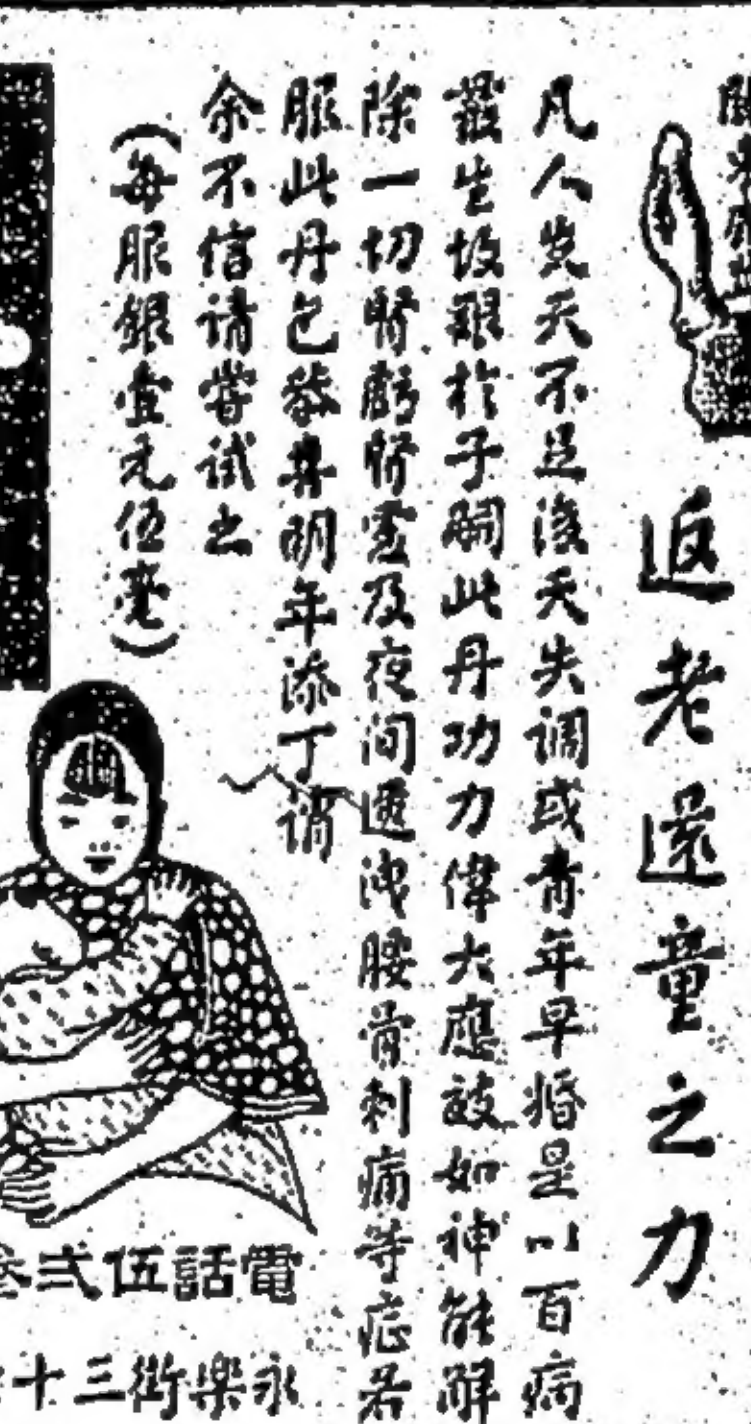 返老還童之力
凡人先天不足後天失調或青年早婚是以百病
叢生故艱於子嗣此丹功力偉大應效如神能解
除一切腎虧腎寒及夜间遗洩腰骨刺痛等症若
服此丹包恭喜明年添丁謂
余不信请嘗試之
(每服銀壹元伍毫)
電話伍弍叁
永樂街三十